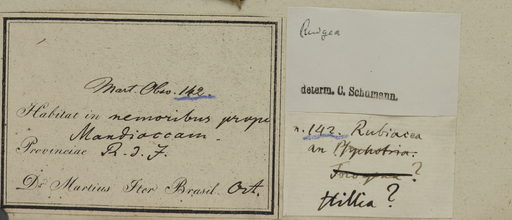 Mart. Obs. 142.
Habitat in nemoribus prope
Mandioccam.
Provinciae R. d. J.
Dr Martius Iter Brasil. Oct.
Rudgea
determ. C. Schumann.
n. 142. Rubiacea
an Psychotria.
?
Hillia?